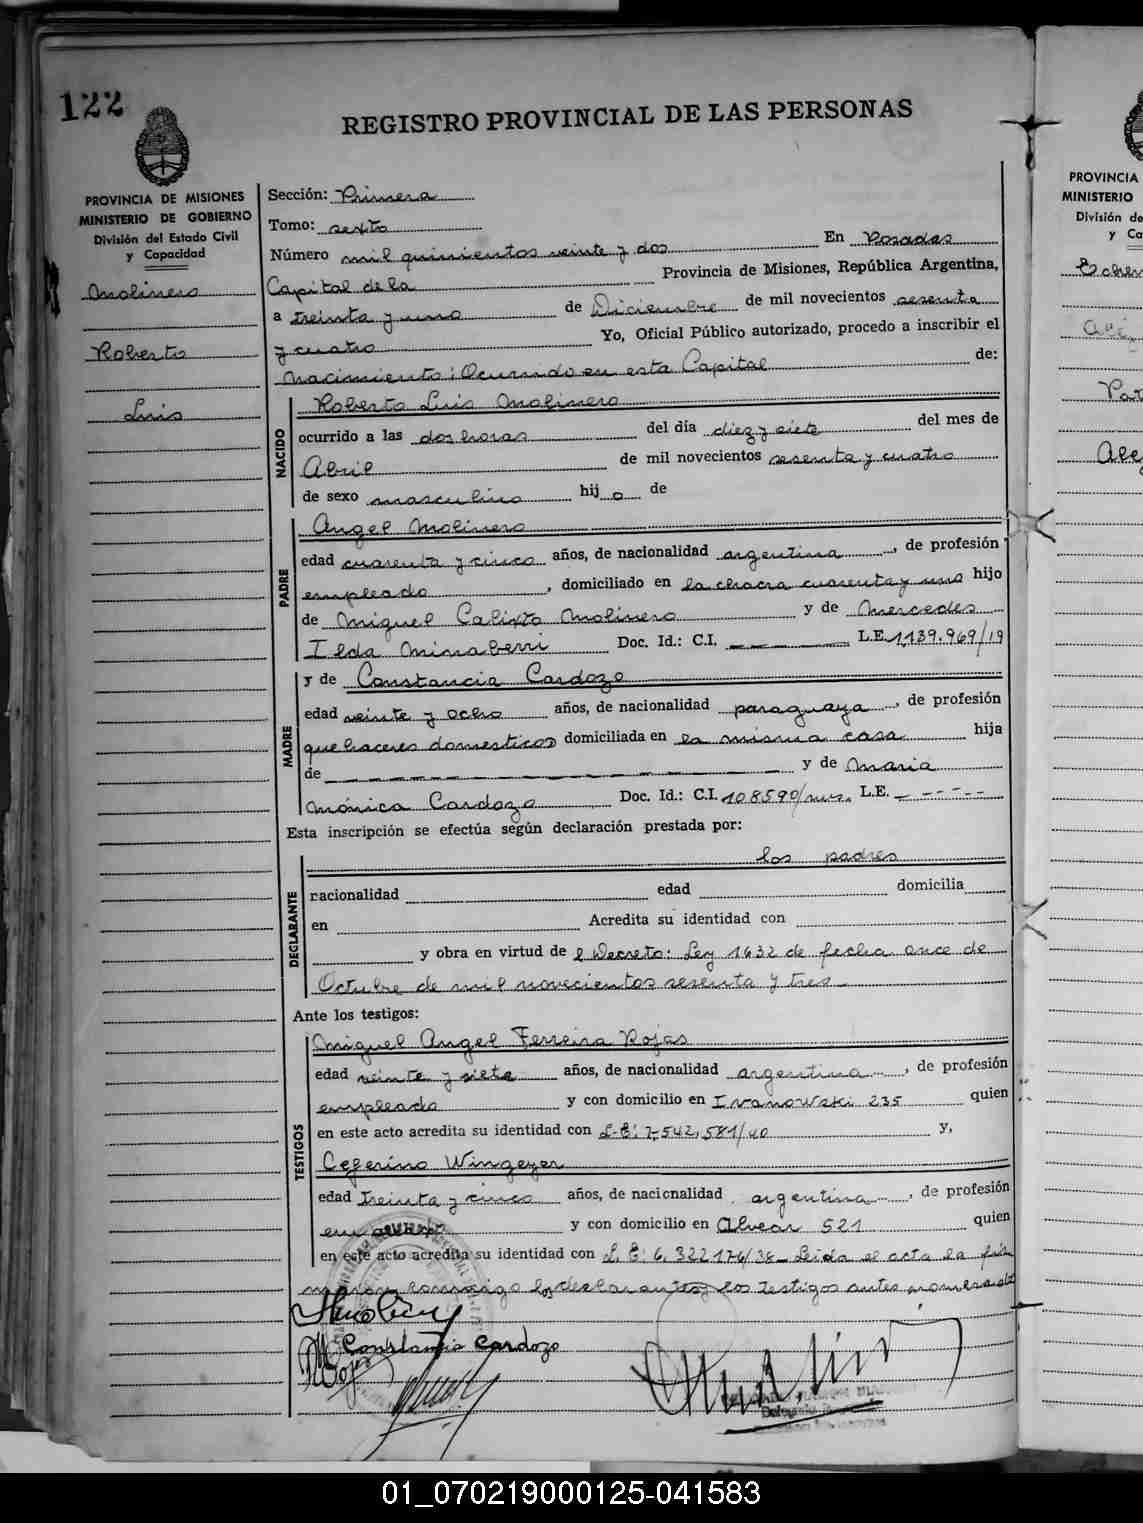 122
REGISTRO PROVINCIAL DE LAS PERSONAS
PROVINCIA DE MISIONES
MINISTERIO DE GOBIERNO
División del Estado Civil
y Capacidad
Molinero
Roberto
Luis
Sección: Primera
Tomo: sexto
Número mil quinientos veinte y dos En Posadas
Capital de la Provincia de Misiones, República Argentina,
a treinta y uno de Diciembre de mil novecientos sesenta
y cuatro Yo, Oficial Público autorizado, procedo a inscribir el
Nacimiento: Ocurrido en esta Capital de:
NACIDO
Roberto Luis Molinero
ocurrido a las dos horas del día diez y siete del mes de
Abril de mil novecientos sesenta y cuatro
de sexo masculino hijo de
PADRE
Angel Molinero
edad cuarenta y cinco años, de nacionalidad argentina, de profesión
empleado, domiciliado en la chacra cuarenta y uno hijo
de Miguel Calixto Molinero y de Mercedes
Ilda Minaberri Doc. Id.: C.I. ------ L.E. 1.139.969/19
MADRE
y de Constancia Cardozo
edad veinte y ocho años, de nacionalidad paraguaya, de profesión
quehaceres domesticos domiciliada en la misma casa hija
de ------------ y de Maria
Mónica Cardozo Doc. Id.: C.I. 108590/mis. L.E. ------
Esta inscripción se efectúa según declaración prestada por:
DECLARANTE
los padres
nacionalidad edad domicilia
en Acredita su identidad con
y obra en virtud de l Decreto: Ley 1632 de fecha once de
Octubre de mil novecientos sesenta y tres
Ante los testigos:
TESTIGOS
Miguel Angel Ferreira Rojas
edad veinte y siete años, de nacionalidad argentina, de profesión
empleado y con domicilio en Ivanowski 235 quien
en este acto acredita su identidad con L.E: 7.542.581/40 y,
Ceferino Wingeyer
edad treinta y cinco años, de nacionalidad argentina, de profesión
empleado y con domicilio en Alvear 521 quien
en este acto acredita su identidad con L.E: 6.322.176/38 Leida el acta la fir
maron conmigo los declarantes y los testigos antes nombrados
Constancia Cardozo
PROVINCIA
MINISTERIO
División de
y Ca
01_070219000125-041583